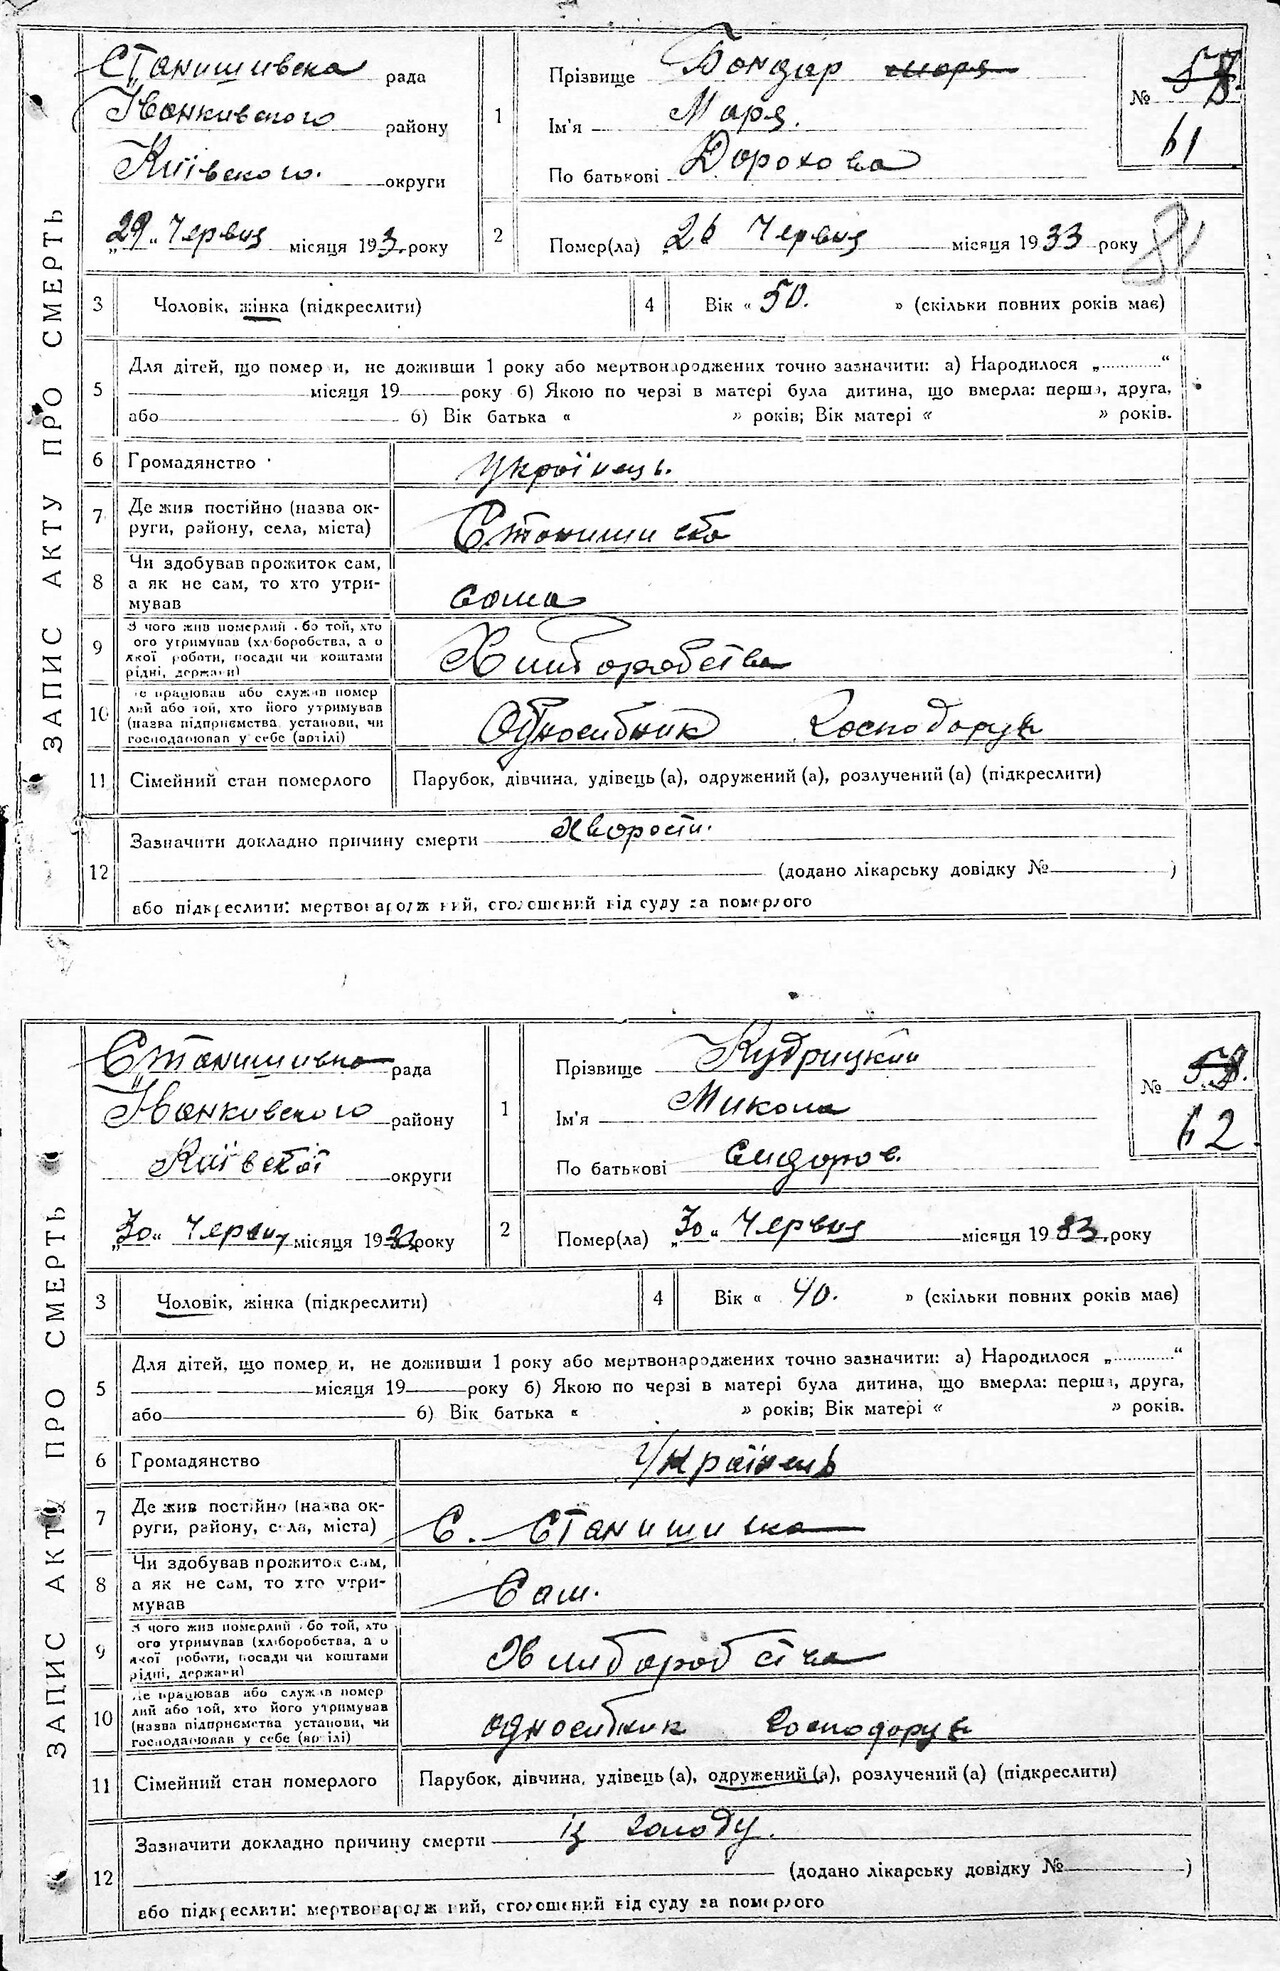 ЗАПИС АКТУ ПРО СМЕРТЬ
Станишивска рада
Іванкивского району
Київского. округи
„29„ Червня місяця 193 року
1
Прізвище Бондар
Ім'я Маря.
По батькові Дорохова
№ 58.
61
2
Помер(ла) „26 Червня місяця 1933 року
3 Чоловік, жінка (підкреслити)
4 Вік « 50. » (скільки повних років має)
5
Для дітей, що помер и, не доживши 1 року або мертвонароджених точно зазначити: а) Народилося „ “
місяця 19 року б) Якою по черзі в матері була дитина, що вмерла: перша, друга,
або б) Вік батька « » років; Вік матері « » років.
6 Громадянство Українець.
7 Де жив постійно (назва ок-
руги, району, села, міста)
8 Чи здобував прожиток сам,
а як не сам, то хто утри-
мував
сама
9 З чого жив померлий або той, хто
ого утримував (хліборобства, а о
якої роботи, посади чи коштами
рідні, держави)
Хлиборобства
10 Де працював або служив помер
лий або той, хто його утримував
(назва підприємства установи, чи
господарював у себе (артілі)
Односибник Господорув
11 Сімейний стан померлого Парубок, дівчина, удівець (а), одружений (а), розлучений (а) (підкреслити)
12
Зазначити докладно причину смерти Хворости.
(додано лікарську довідку № )
або підкреслити: мертвонароджений, оголошений від суду за померлого
ЗАПИС АКТУ ПРО СМЕРТЬ
Станишивка рада
Іванковского району
Київскої округи
„30„ Червня місяця 1933 року
1
Прізвище Кудрицкий
Ім'я Микола
По батькові Сидоров.
№ 58.
62
2
Помер(ла) „30„ Червня місяця 1933. року
3 Чоловік, жінка (підкреслити)
4 Вік « 40. » (скільки повних років має)
5
Для дітей, що помер и, не доживши 1 року або мертвонароджених точно зазначити: а) Народилося „ “
місяця 19 року б) Якою по черзі в матері була дитина, що вмерла: перша, друга,
або б) Вік батька « » років; Вік матері « » років.
6 Громадянство Українець
7 Де жив постійно (назва ок-
руги, району, села, міста)
С. Станишивка
8 Чи здобував прожиток сам,
а як не сам, то хто утри-
мував
Сам.
9 З чого жив померлий або той, хто
ого утримував (хліборобства, а о
якої роботи, посади чи коштами
рідні, держави)
Хлиборобства
10 Де працював або служив помер
лий або той, хто його утримував
(назва підприємства установи, чи
господарював у себе (артілі)
односибник Господорув
11 Сімейний стан померлого Парубок, дівчина, удівець (а), одружений (а), розлучений (а) (підкреслити)
12
Зазначити докладно причину смерти із голоду.
(додано лікарську довідку № )
або підкреслити: мертвонароджений, оголошений від суду за померлого